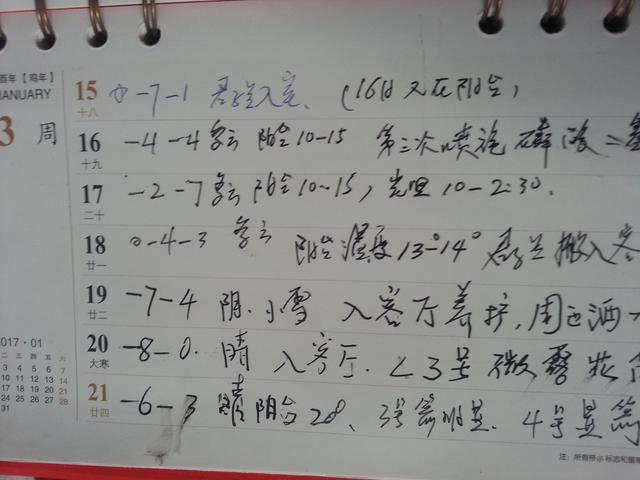 酉年【鸡年】
JANUARY
3 周
15 十八 -7-1 君子兰入室、(16日又在阳台,
16 十九 -4-4 多云 阳台10-15 第三次喷施磷酸二
17 二十 -2-7 多云 阳台10-15, 光照10-2:30.
18 廿一 0-4-3 多云 阳台温度13°-14° 君子兰搬入客
19 廿二 -7-4 阴.小雪 入客厅养护,周边洒
20 大寒 -8-0. 晴 入客厅. 23号微露花
21 廿四 -6-3 晴 阳台28、3号箭明显. 4号显箭
2017·01
二 三 四 五 六
3 4 5 6 7
10 11 12 13 14
17 18 19 20 21
24 25 26 27 28
31
注:所有带 标志和星期